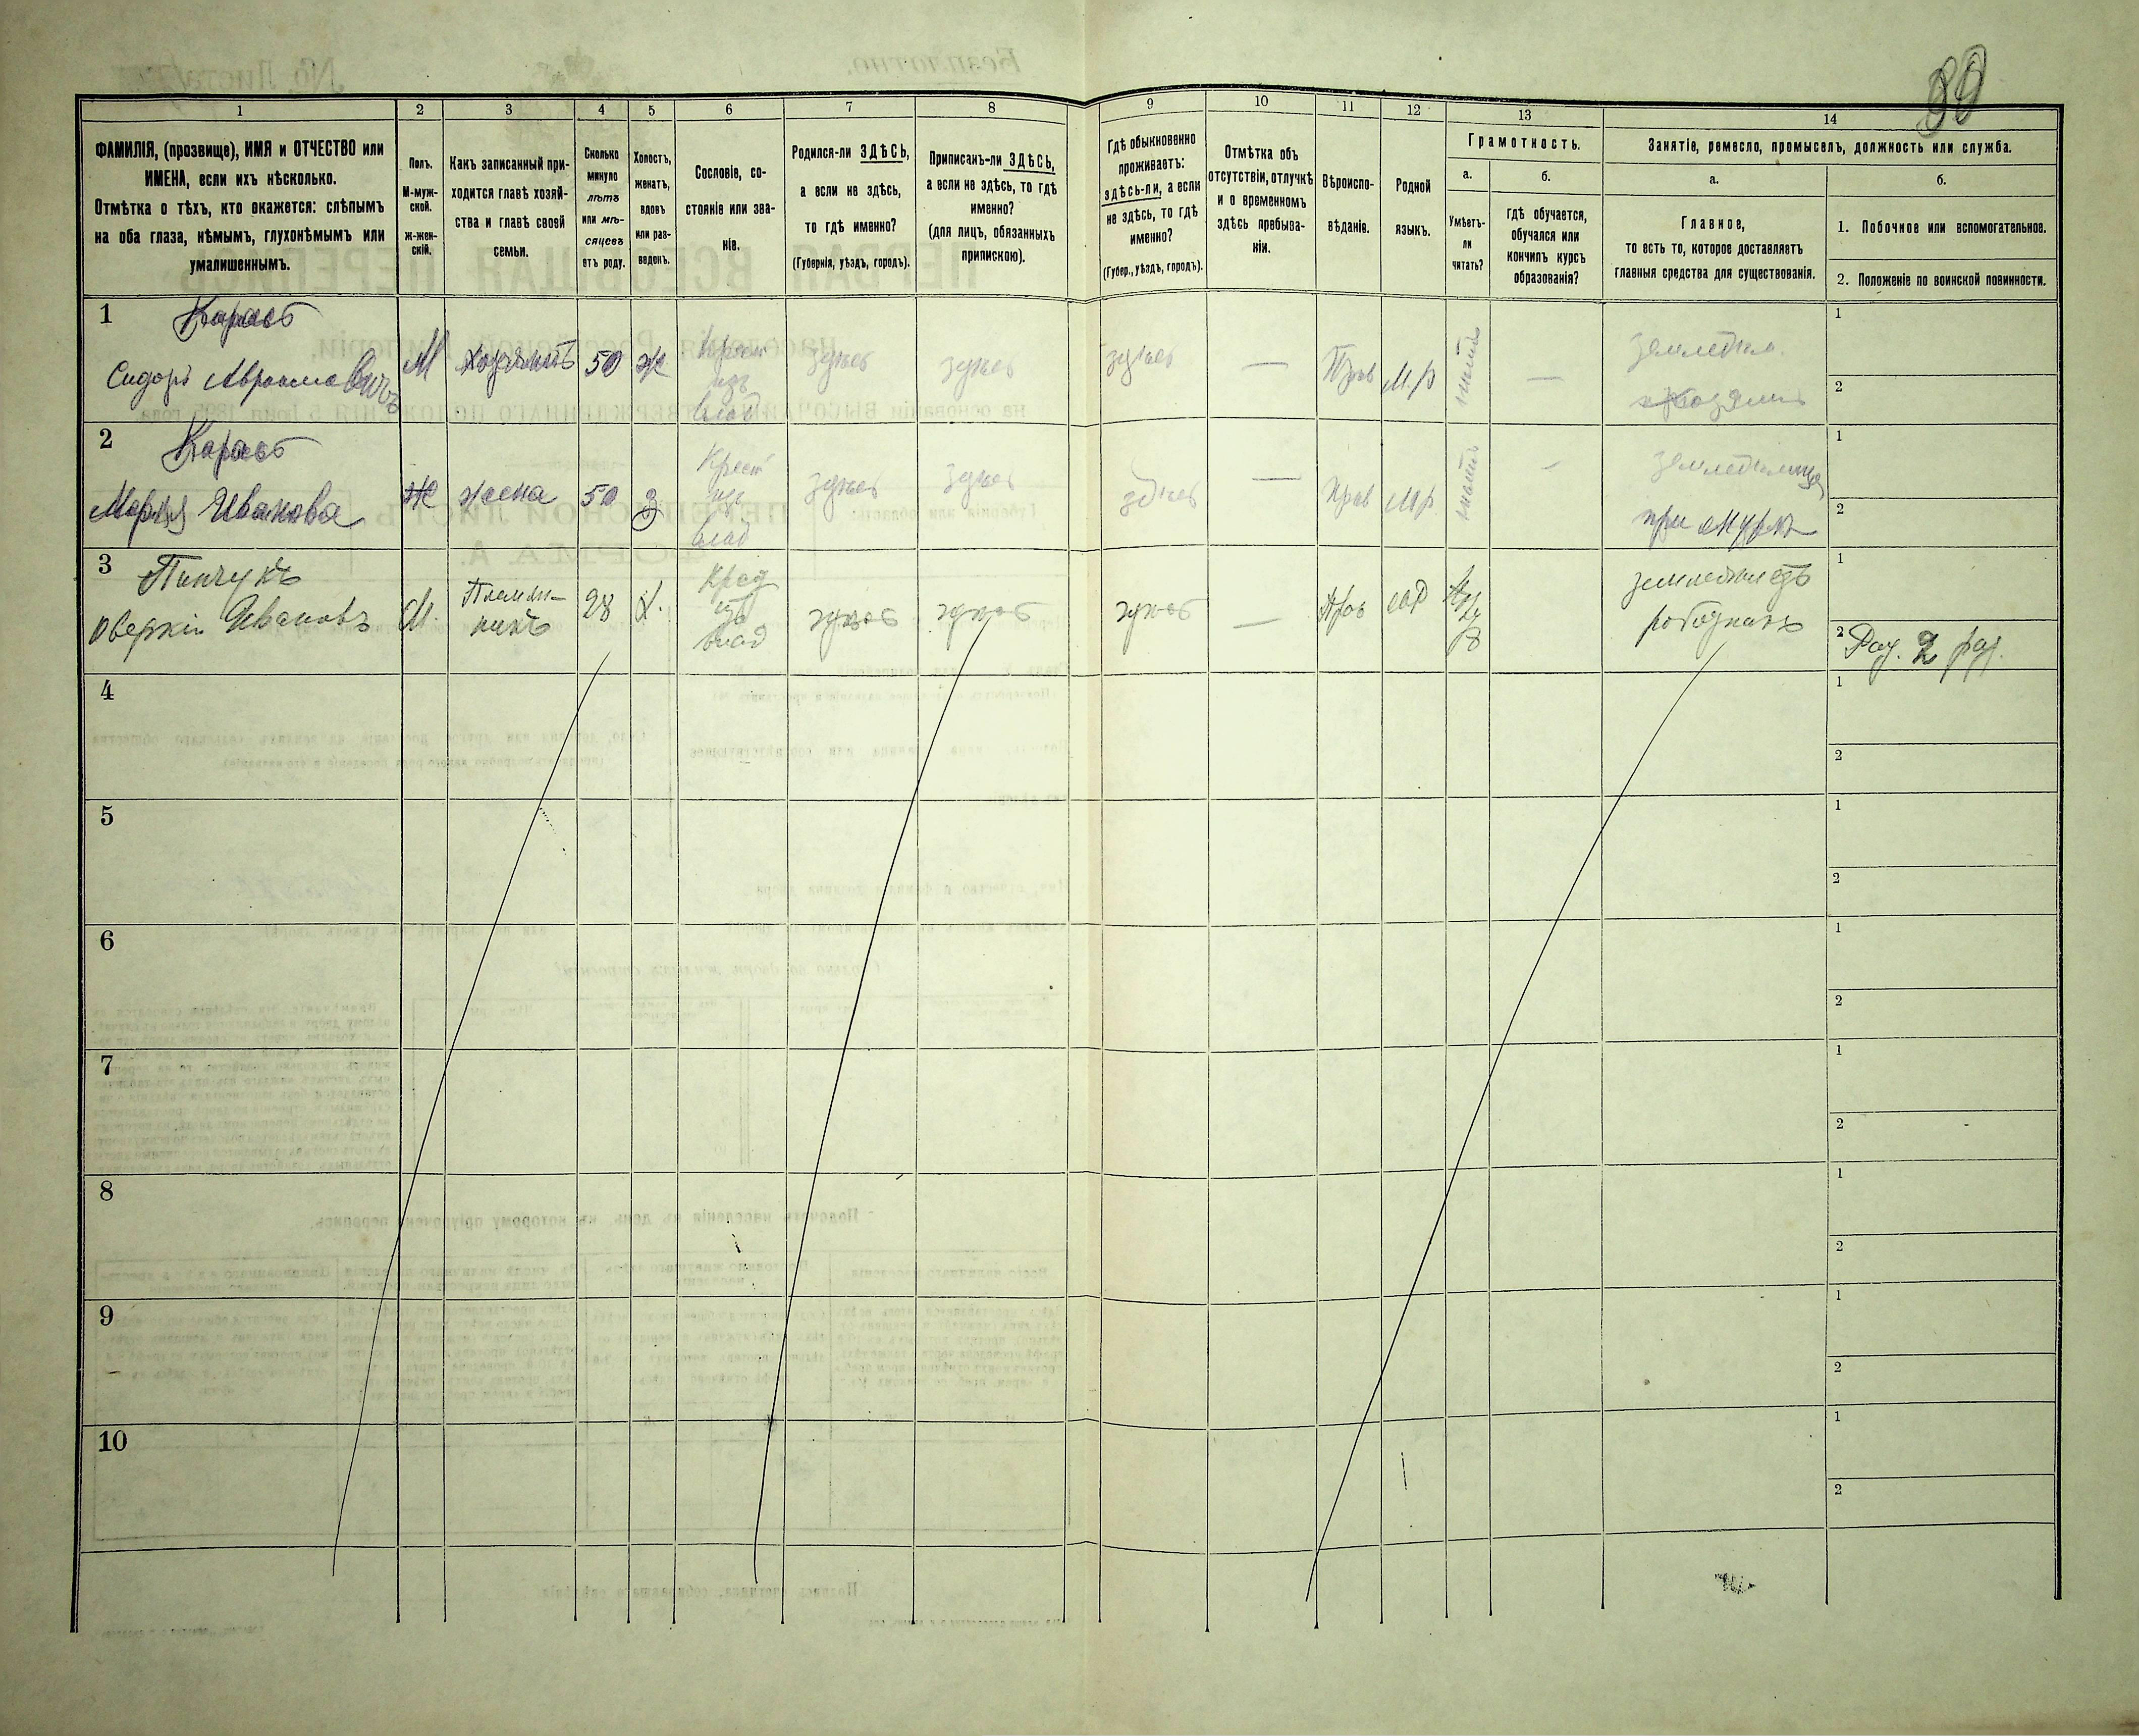 88
1 2 3 4 5 6 7 8 9 10 11 12 13 14
ФАМИЛІЯ, (прозвище), ИМЯ и ОТЧЕСТВО или
ИМЕНА, если ихъ нѣсколько.
Отмѣтка о тѣхъ, кто окажется: слѣпымъ
на оба глаза, нѣмымъ, глухонѣмымъ или
умалишеннымъ.
Полъ.
М-муж-
ской.
Ж-жен-
скій.
Какъ записанный при-
ходится главѣ хозяй-
ства и главѣ своей
семьи.
Сколько
минуло
лѣтъ
или мѣ-
сяцевъ
отъ роду.
Холостъ,
женатъ,
вдовъ
или раз-
веденъ.
Сословіе, со-
стояніе или зва-
ніе.
Родился-ли ЗДѢСЬ,
а если не здѣсь,
то гдѣ именно?
(Губернія, уѣздъ, городъ).
Приписанъ-ли ЗДѢСЬ,
а если не здѣсь, то гдѣ
именно?
(для лицъ, обязанныхъ
припискою).
Гдѣ обыкновенно
проживаетъ:
здѣсь-ли, а если
не здѣсь, то гдѣ
именно?
(Губер., уѣздъ, городъ).
Отмѣтка объ
отсутствіи, отлучкѣ
и о временномъ
здѣсь пребыва-
ніи.
Вѣроиспо-
вѣданіе.
Родной
языкъ.
Грамотность.
а.
Умѣетъ-
ли
читать?
б.
Гдѣ обучается,
обучался или
кончилъ курсъ
образованія?
Занятіе, ремесло, промыселъ, должность или служба.
а.
Главное,
то есть то, которое доставляетъ
главныя средства для существованія.
б.
1. Побочное или вспомогательное.
2. Положеніе по воинской повинности.
1
Карась
Сидоръ Авраамовичъ
М
хозяинъ
50
Ж
Крест
изъ
влад
здѣсь
здѣсь
здѣсь
—
Прав
М.р
—
земледѣл.
хозяинъ
1
2
2
Карась
Марія Иванова
Ж
жена
50
З
Крест
изъ
влад
здѣсь
здѣсь
здѣсь
—
Прав
М.р
—
земледѣлица
при мужѣ
1
2
3
Пинчукъ
Оверкій Ивановъ
М.
Племян-
никъ
28
Х.
Крес
изъ
влад
здѣсь
здѣсь
здѣсь
—
Прав
земледѣлецъ
работникъ
1
2 Рат. 2 раз.
4
1
2
5
1
2
6
1
2
7
1
2
8
1
2
9
1
2
10
1
2